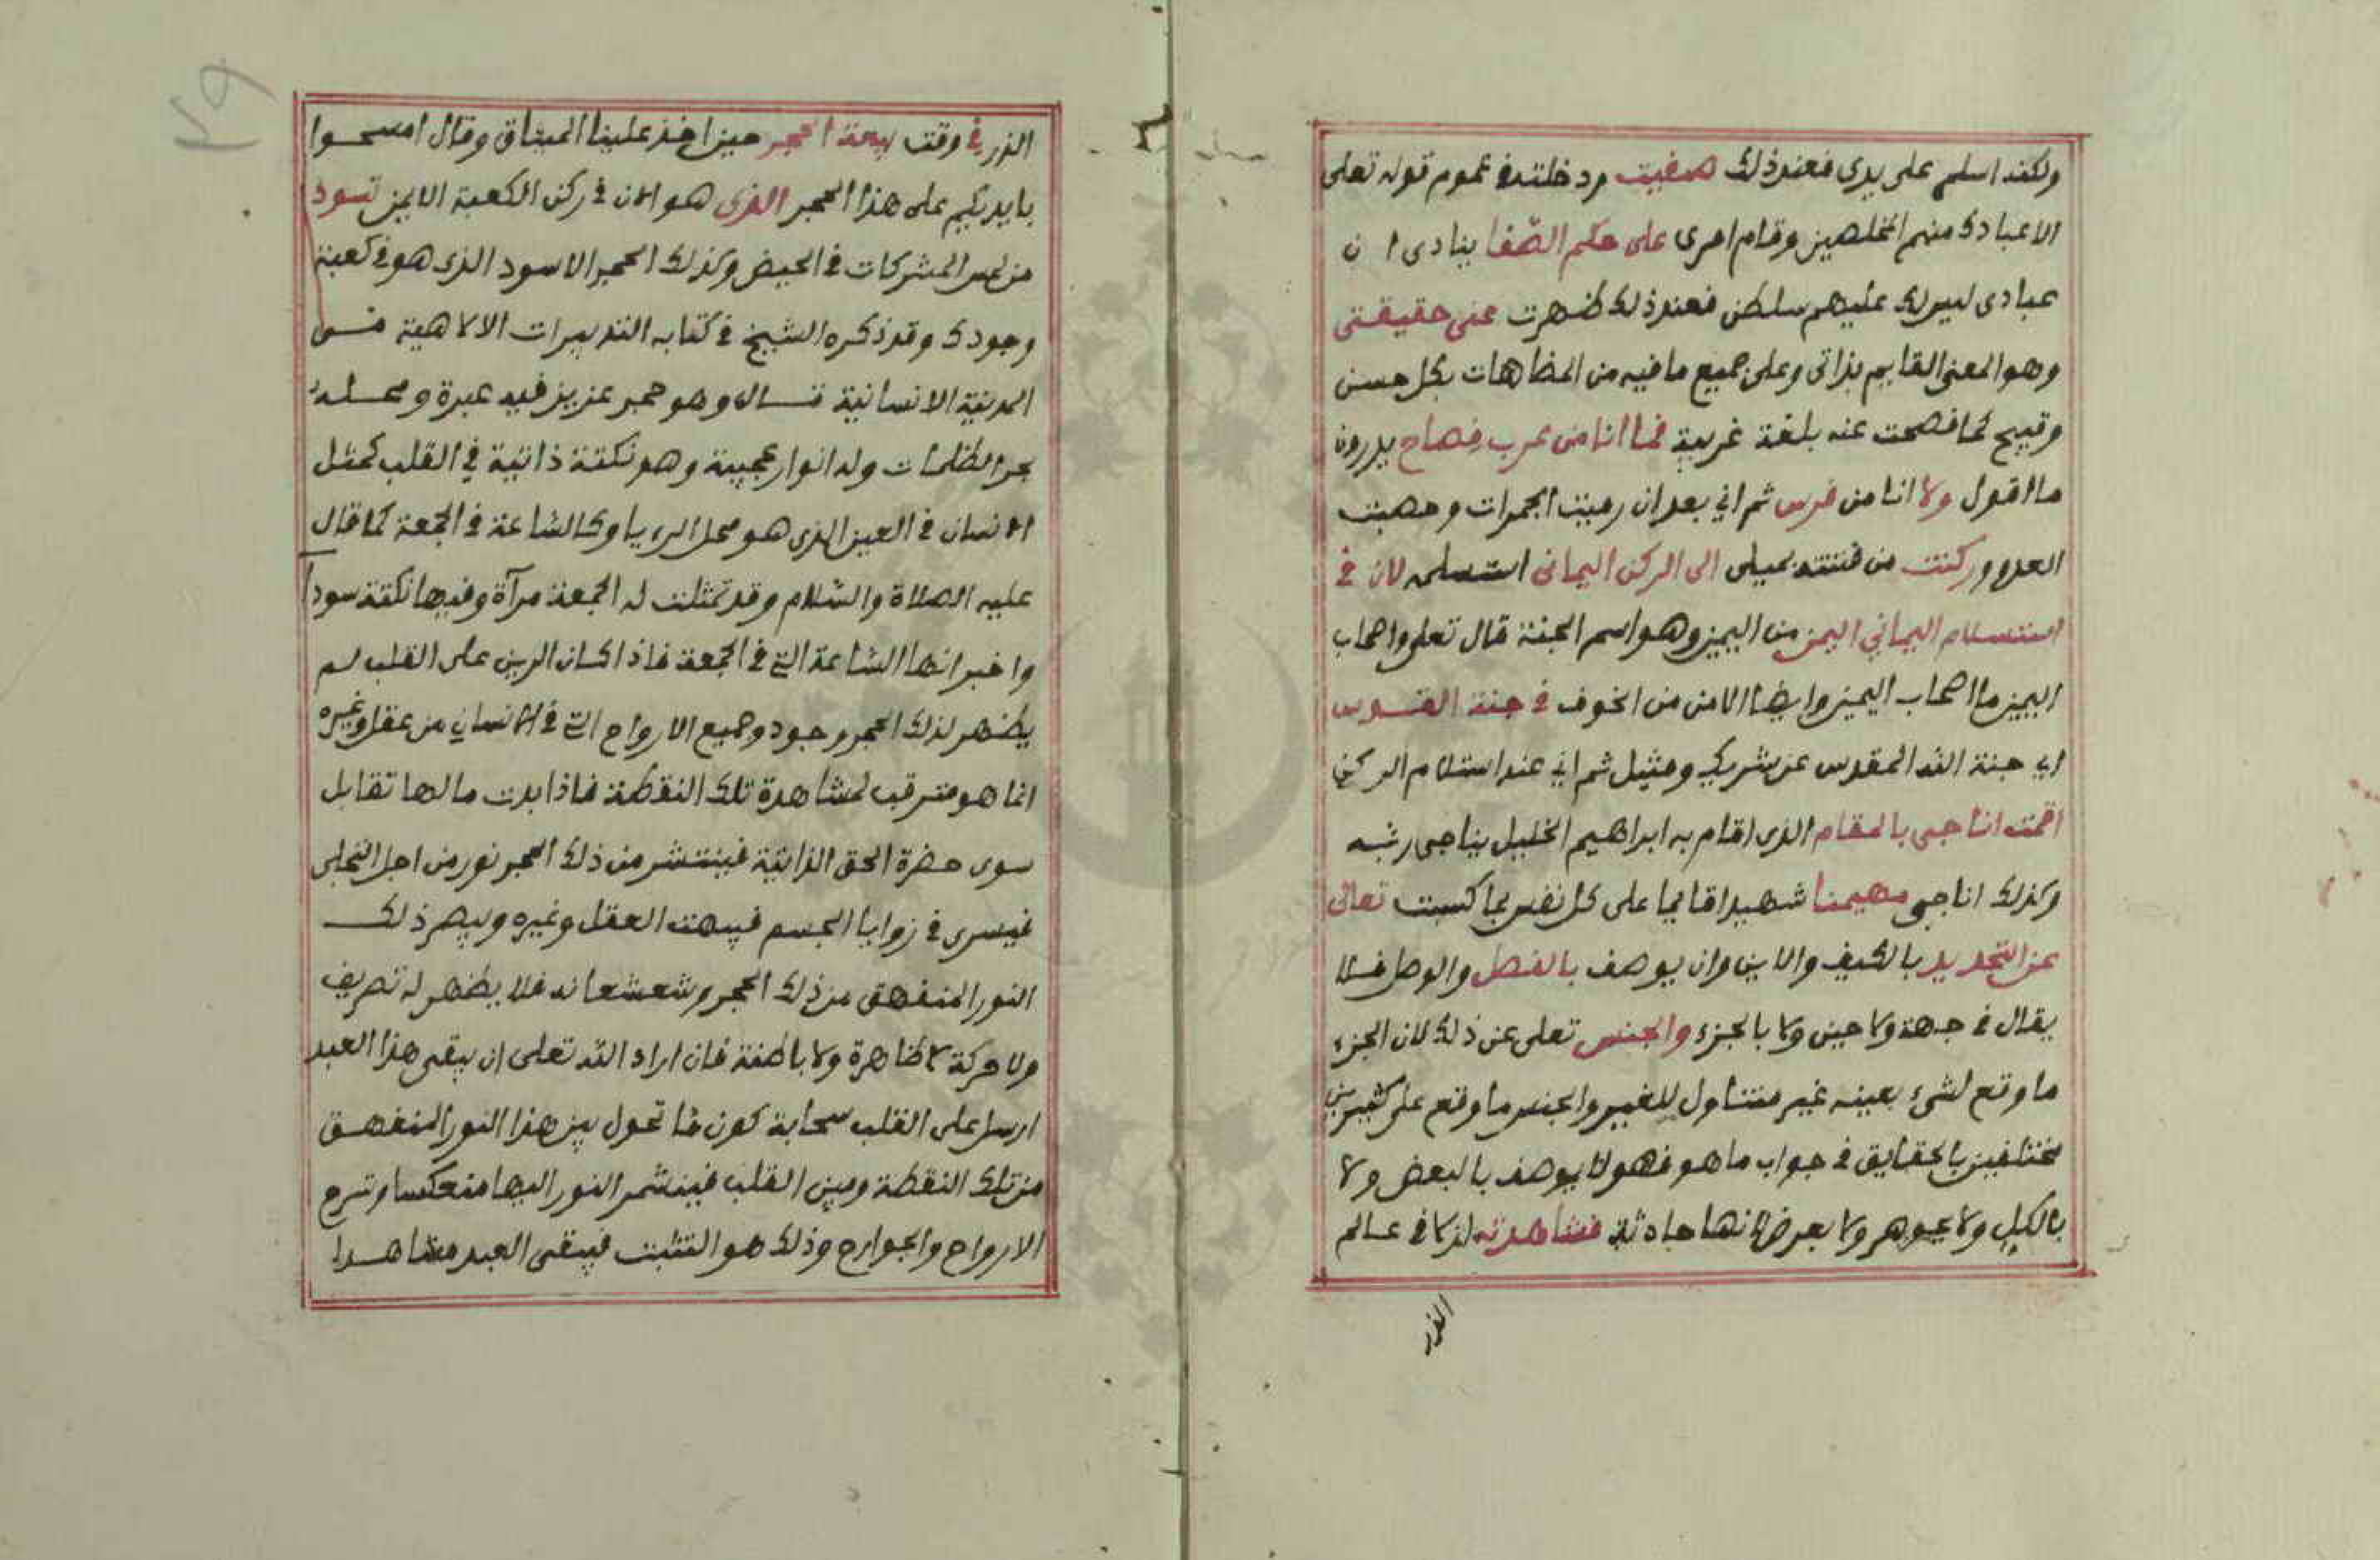 ولكنه اسلم على يدى فعند ذلك صفيت ودخلت في عموم قوله تعلى
الا عبادك منهم المخلصين وقام امرى على حكم الصّفا ينادى ا ن
عبادى ليس لك عليهم سلطن فعند ذلك ظهرت عنى حقيقتى
وهو المعنى القايم بذاتى وعلى جميع ما فيه من المضاهات بكل حسن
وقبيح كما فصحت عنه بلغة غريبة فما انا من عرب فصاح يدرون
ما اقول ولا انا من فرس ثم اني بعد ان رميت الجمرات وحصبت
العدو وركنت من فتنته بميلى الى الركن اليمانى استلمه لان في
استسلام اليماني اليمن من اليمين وهو اسم الجنة قال تعلى واصحاب
اليمين ما اصحاب اليمين وايضا الامن من الخوف في جنة القدس
اي جنة الله المقدس عن شريك ومثيل ثم اني عند استلام الركن
اقمت اناجى بالمقام الذى اقام به ابراهيم الخليل يناجى ربه
وكذلك اناجى مهيمنا شهيدا قايما على كل نفس بما كسبت تعالى
عن التحديد بالكيف والاين وان يوصف بالفصل والوصل فلا
يقال في جهة ولا حين ولا بالجزء والجنس تعلى عن ذلك لان الجزء
ما وقع لشيء بعينه غير متناول للغير والجنس ما وقع على كثيرين
مختلفين بالحقايق في جواب ما هو فهو لا يوصف بالبعض ولا
بالكل ولا بجوهر ولا بعرض لانها حادثة فشاهدته لذ كا في عالم
الذر
٢٩
الذر في وقت بيعة الحجر حين اخذ علينا الميثاق وقال امسحوا
بايديكم على هذا الحجر الذى هو الان في ركن الكعبة الايمن تسود
من لمس المشركات في الحيض وكذلك الحجر الاسود الذى هو في كعبة
وجودك وقد ذكره الشيخ في كتابه التدبيرات الالاهية في
المدينة الانسانية قال وهو حجر عزيز فيه عبرة ومحله
بحر الظلمات وله انوار عجيبة وهو نكتة ذاتية في القلب كمثل
الانسان في العين الذى هو محل الرءيا وكالساعة في الجمعة كما قال
عليه الصلاة والسّلام وقد تمثلت له الجمعة مرآة وفيها نكتة سودآ
واخبر انها الساعة التي في الجمعة فاذا كان الرين على القلب لم
يظهر لذلك الحجر وجود وجميع الارواح التي في الانسان من عقل وغيره
انما هو مترقب لمشاهدة تلك النقطة فاذا بدت مالها تقابل
سوى حضرة الحق الذاتية فينتشر من ذلك الحجر نور من اجل التجلى
فيسرى في زوايا الجسم فيبهت العقل وغيره ويبهر ذلك
النور المنفهق من ذلك الحجر وشعشعانه فلا يظهر له تصريف
ولا حركة لا ظاهرة ولا باطنة فان اراد الله تعلى ان يبقى هذا العبد
ارسل على القلب سحابة كون ما تحول بين هذا النور المنفهق
من تلك النقطة وبين القلب فينتشر النور اليها منعكسا وتسرح
الارواح والجوارح وذلك هو التثبت فيبقى العبد مشاهدا